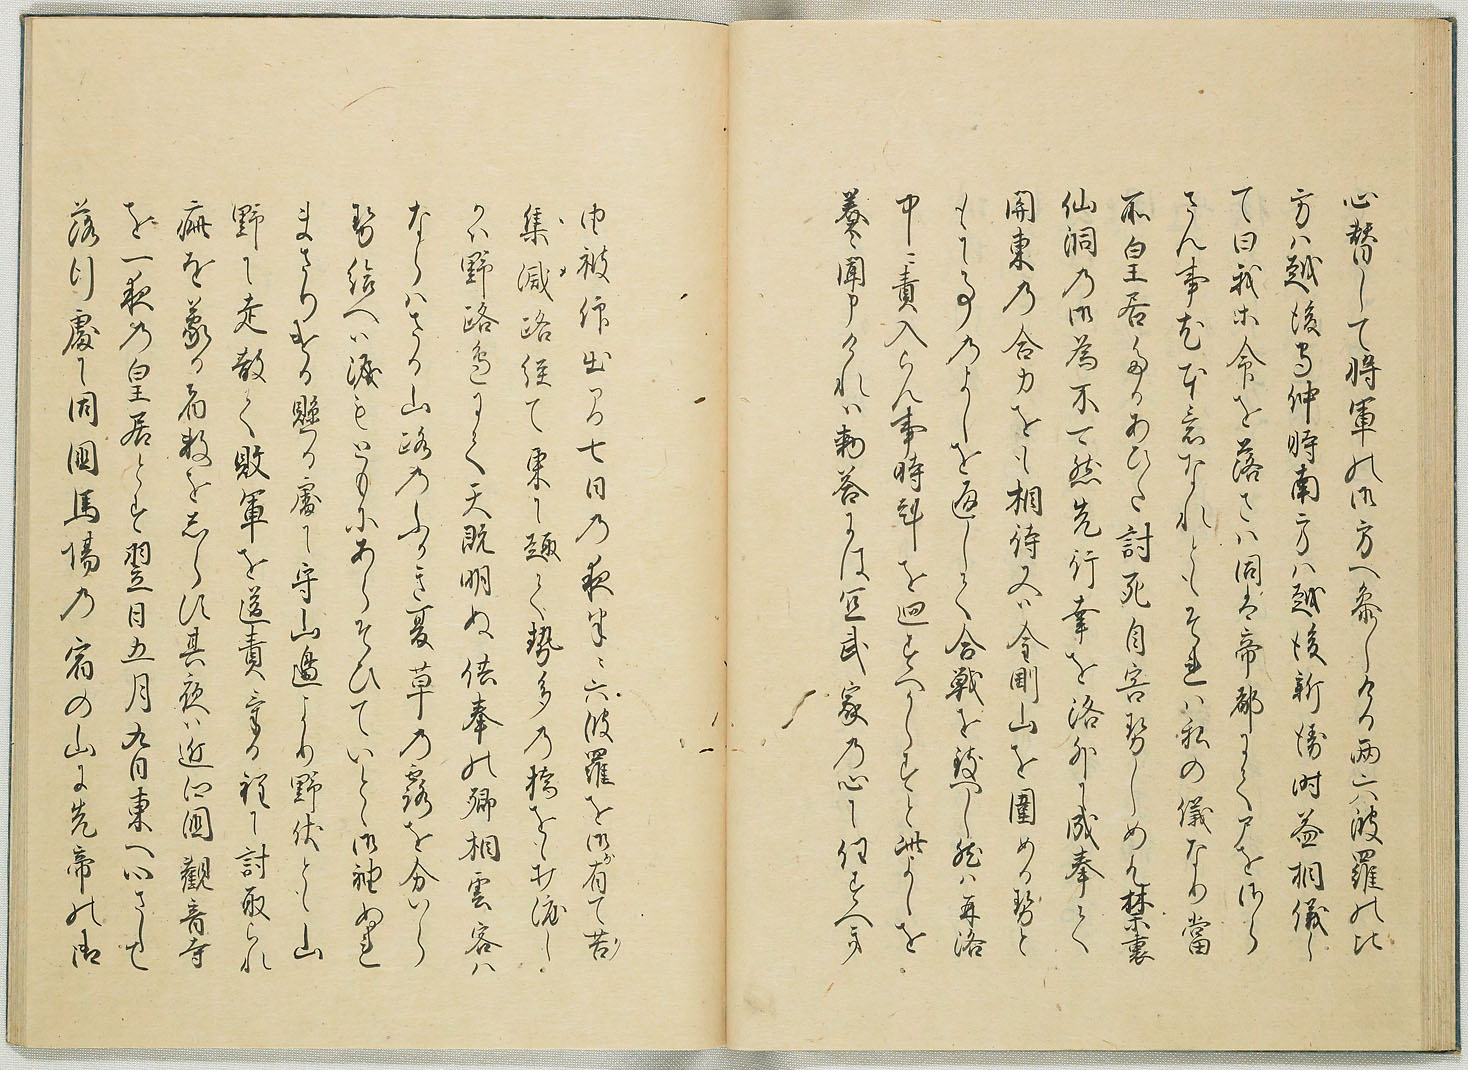 心替して将軍の御方へ参しける両六波羅の北
方ハ越後守仲時南方ハ越後新時益相儀し
て曰我等命を落さハ同は帝都にて戸を
さん事尤本意なれともそれハ私の儀なり當
所皇居たるあひた討死自害せしめん禁裏
仙洞乃御為不可然先行幸を洛外に成奉て
関東乃合力をも相待又ハ金剛山を圍める勢と
もに事のよしを通して合戦を致し然ハ再洛
中ニ責入らん事時剋を廻すへからすと此よしを
奏聞申けれハ勅答には宜武家乃心に任すへき
由被仰出る七日乃夜半ニ六波羅を御有て苦
集滅路経て東に趣て勢多乃橋をも打渡し
ハ野路邊にて天既明ぬ供奉の卿相雲客ハ
ならハさる山路乃ふかき夏草乃露を分
勢給へハ涙もともにあらそひていとゝ御袖ぬれ
まさりける懸る處に守山邊より野伏とも山
野に走散て敗軍を追責ける程に討取られ
疵を蒙る者数をしらす其夜ハ近江國観音寺
を一夜乃皇居とす翌日五月九日東へ心さして
落行處に同國馬場乃宿の山に先帝の御